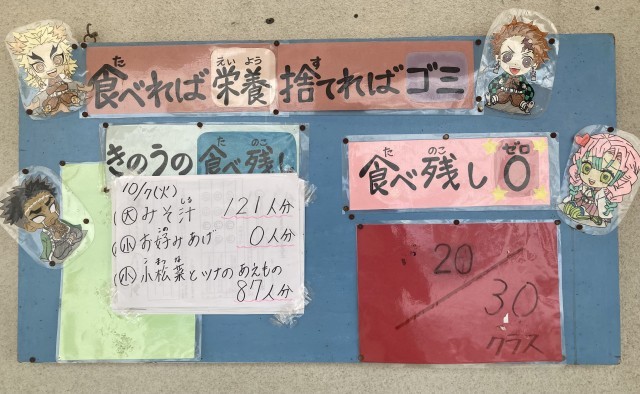 食べれば栄養捨てればゴミ
きのうの食べ残し
10/7(火)
(大)みそ汁 121人分
(小)お好みあげ 0人分
(小)小松菜とツナのあえもの
87人分
食べ残し0
20/30
クラス